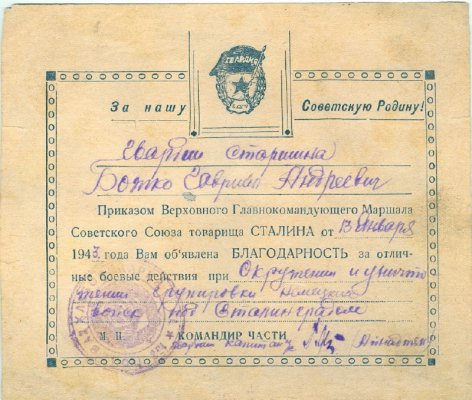 ГВАРДИЯ
За нашу Советскую Родину!
Гвардии Старшина
Божко Гавриил Андреевич
Приказом Верховного Главнокомандующего Маршала
Советского Союза товарища СТАЛИНА от 13 Января
1943 года Вам об'явлена БЛАГОДАРНОСТЬ за отлич-
ные боевые действия при Окружении и уничто
жении группировки немецких
войск под Сталинградом
М. П. КОМАНДИР ЧАСТИ
гвардии капитан